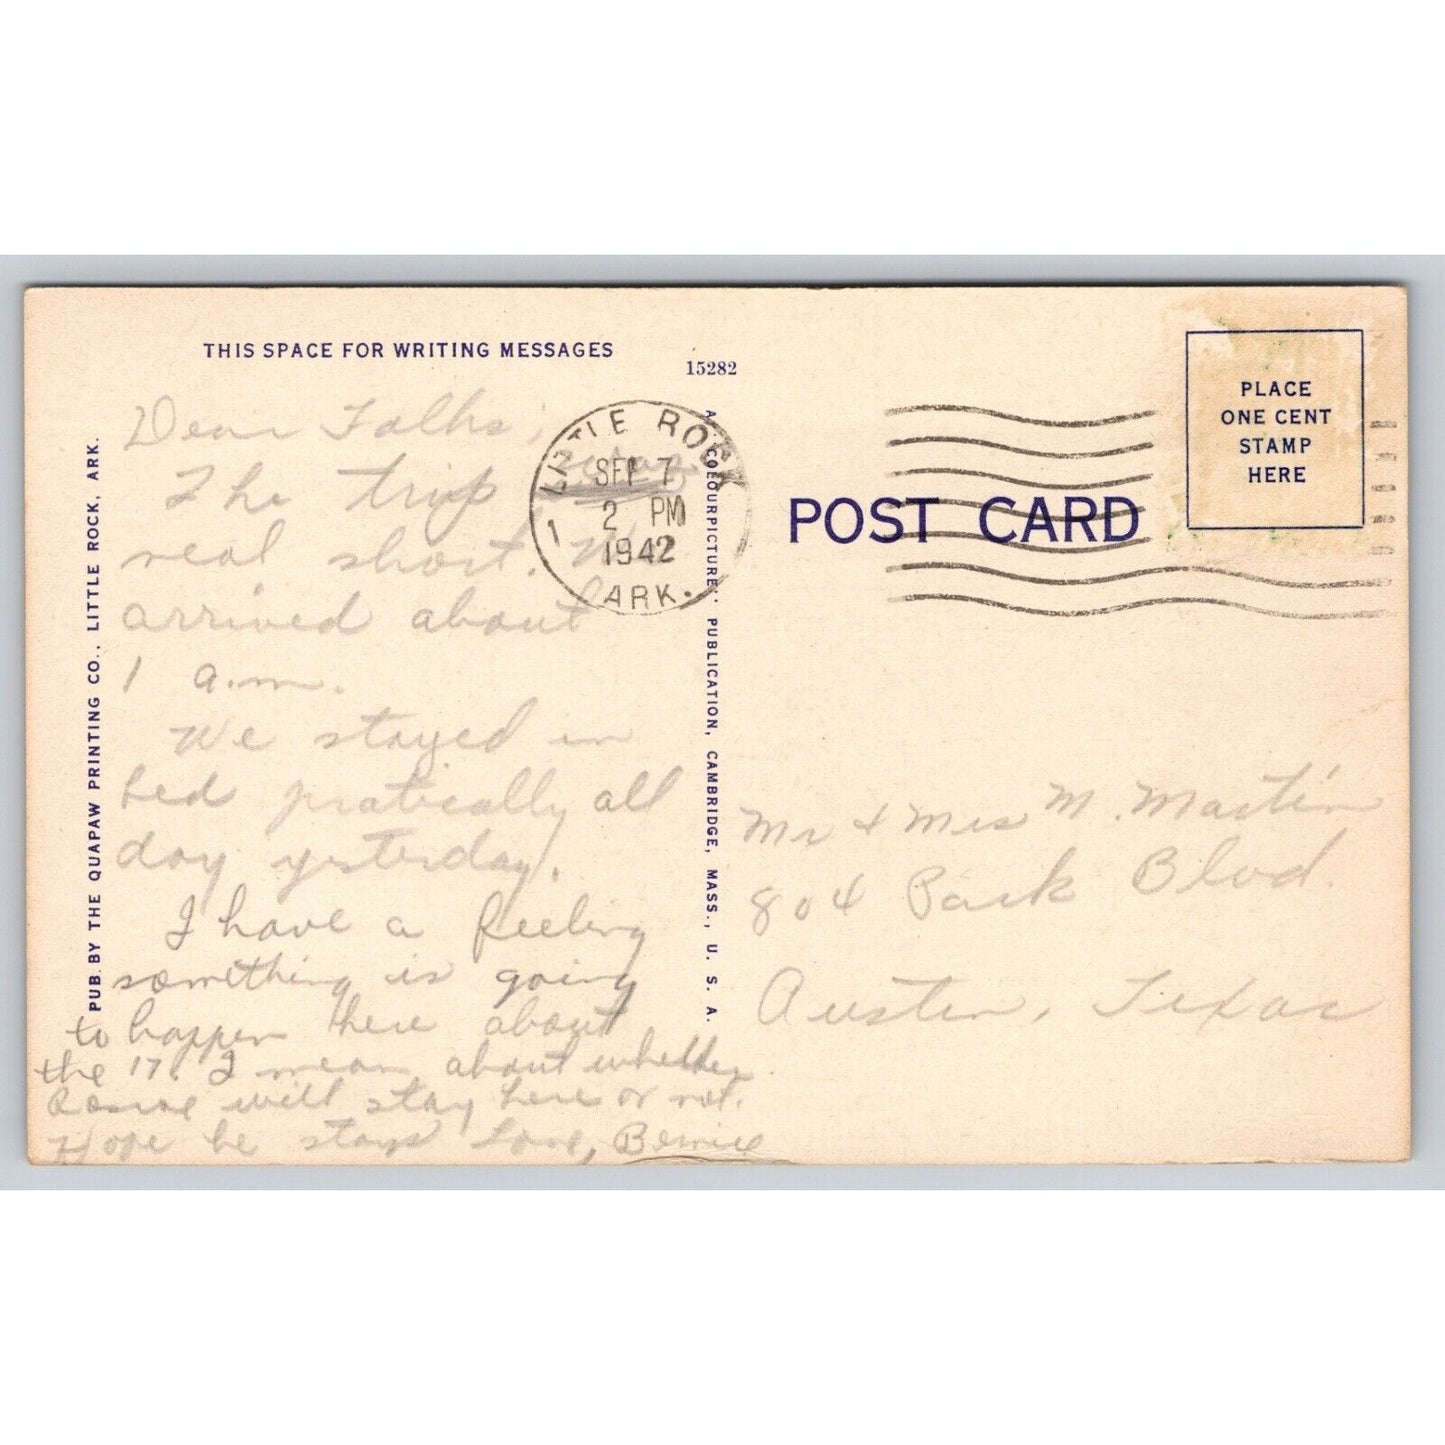 THIS SPACE FOR WRITING MESSAGES
15282
PUB. BY THE QUAPAW PRINTING CO., LITTLE ROCK, ARK.
Dear Folks,
The trip
real short. We
arrived about
1 a.m.
We stayed in
bed pratically all
day yesterday.
I have a feeling
something is going
to happen here about
the 17. I mean about whether
will stay here or not.
Hope he stays Love, Bernice
LITTLE ROCK
1
SEP 7
2 PM
1942
ARK.
COLOURPICTURE PUBLICATION, CAMBRIDGE, MASS., U. S. A.
POST CARD
PLACE
ONE CENT
STAMP
HERE
Mr & Mrs M. Martin
804 Park Blvd.
Austin, Texas